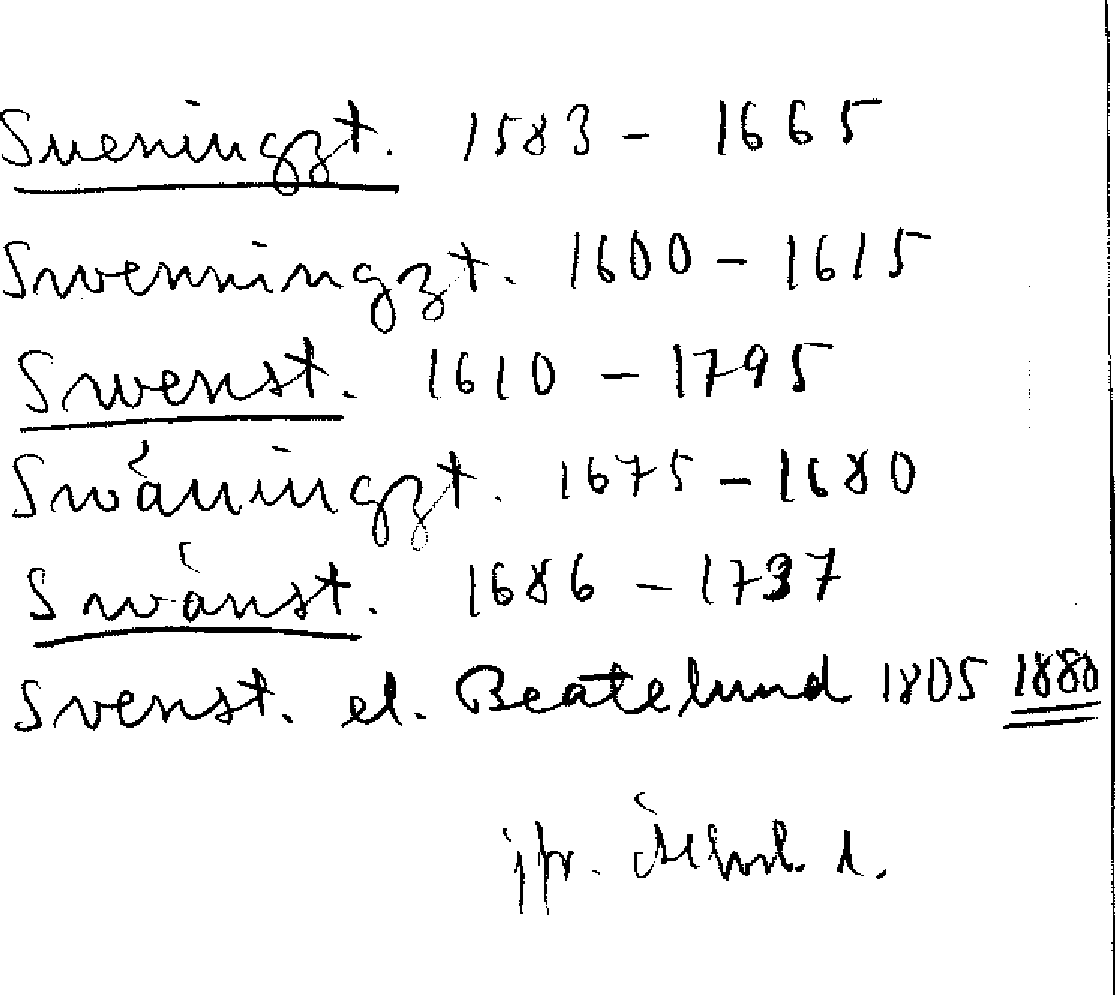 Sueningzt. 1583 - 1665
Swenningzt. 1600 - 1615
Swenst. 1610 - 1795
Swäningzt. 1675 - 1680
Swänst. 1686 - 1737
Svenst. el. Beatelund 1805 1880
jfr.